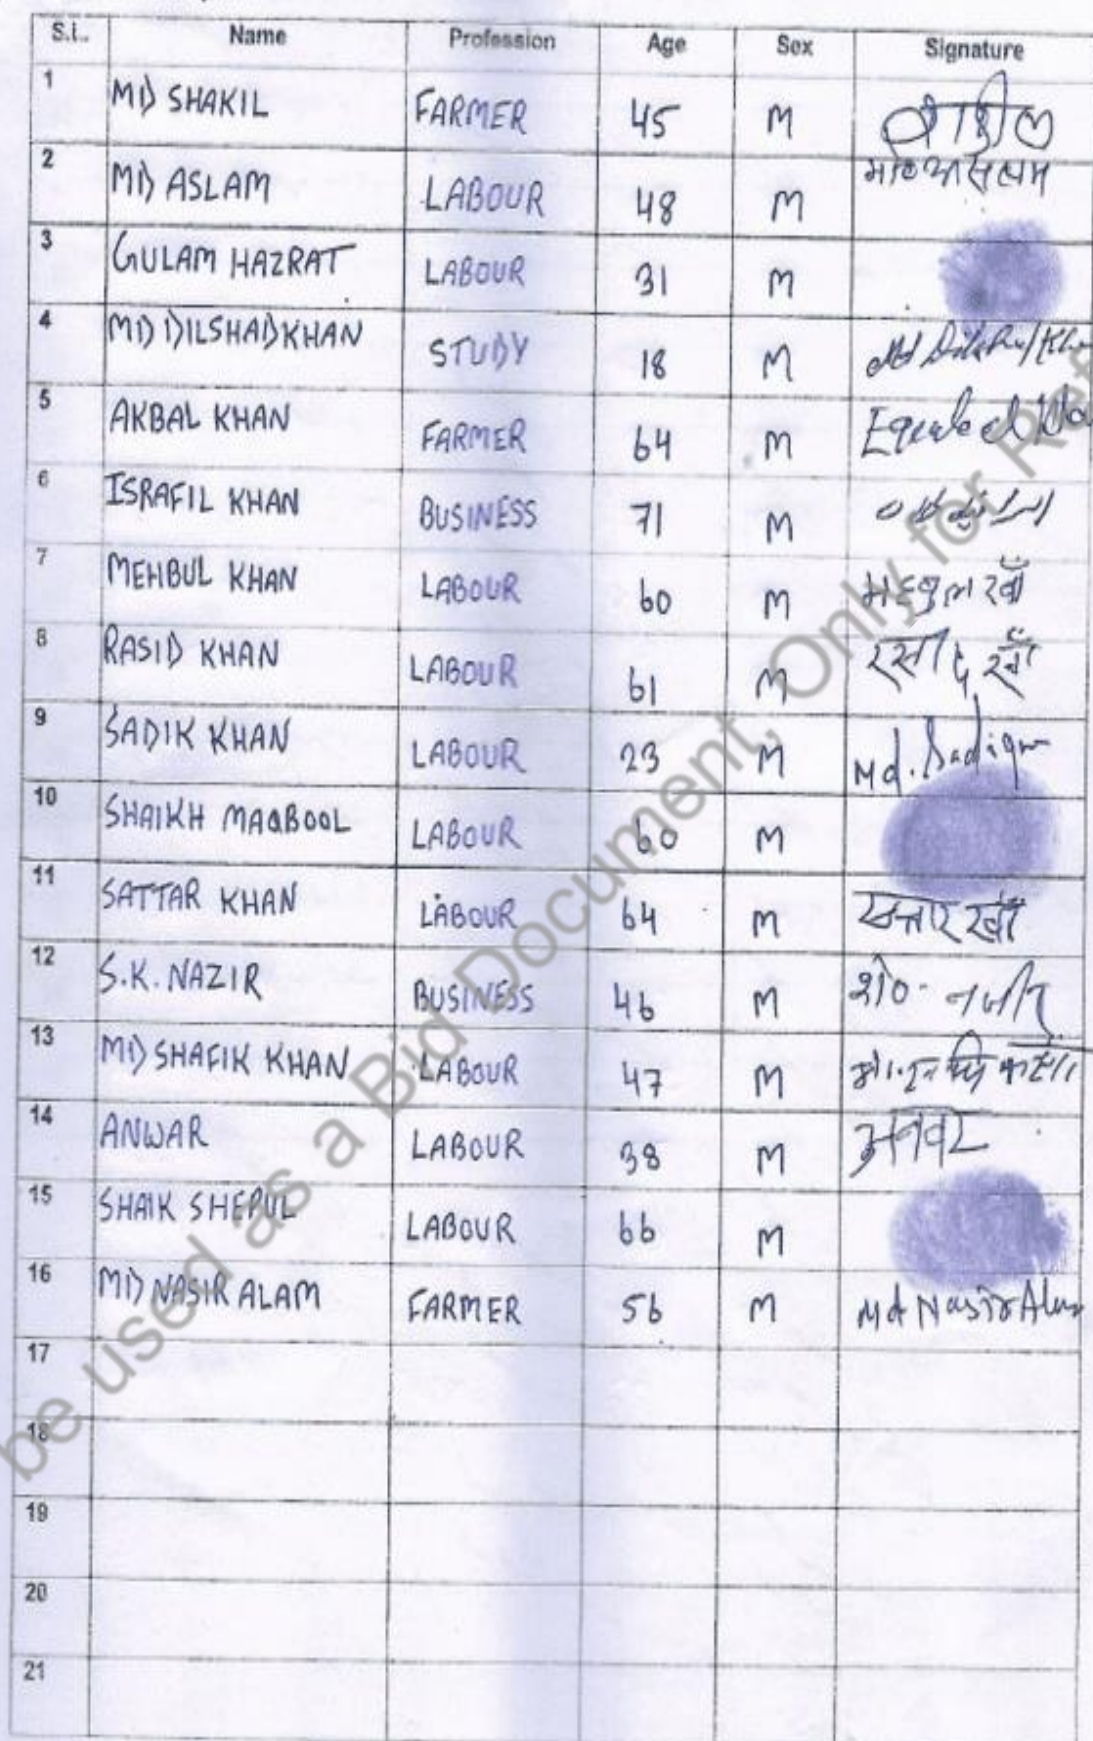 S.I.. Name Profession Age Sex Signature
1 MD SHAKIL FARMER 45 M
2 MD ASLAM LABOUR 48 M
3 GULAM HAZRAT LABOUR 31 M
4 MD DILSHAD KHAN STUDY 18 M
5 AKBAL KHAN FARMER 64 M
6 ISRAFIL KHAN BUSINESS 71 M
7 MEHBUL KHAN LABOUR 60 M
8 RASID KHAN LABOUR 61 M
9 SADIK KHAN LABOUR 23 M Md.
10 SHAIKH MAQBOOL LABOUR 60 M
11 SATTAR KHAN LABOUR 64 M
12 S.K. NAZIR BUSINESS 46 M
13 MD SHAFIK KHAN LABOUR 47 M
14 ANWAR LABOUR 38 M अनवर
15 SHAIK LABOUR 66 M
16 MD NASIR ALAM FARMER 56 M Md Nasir Alam
17
18
19
20
21
be used as a Bid Document, Only for Ref